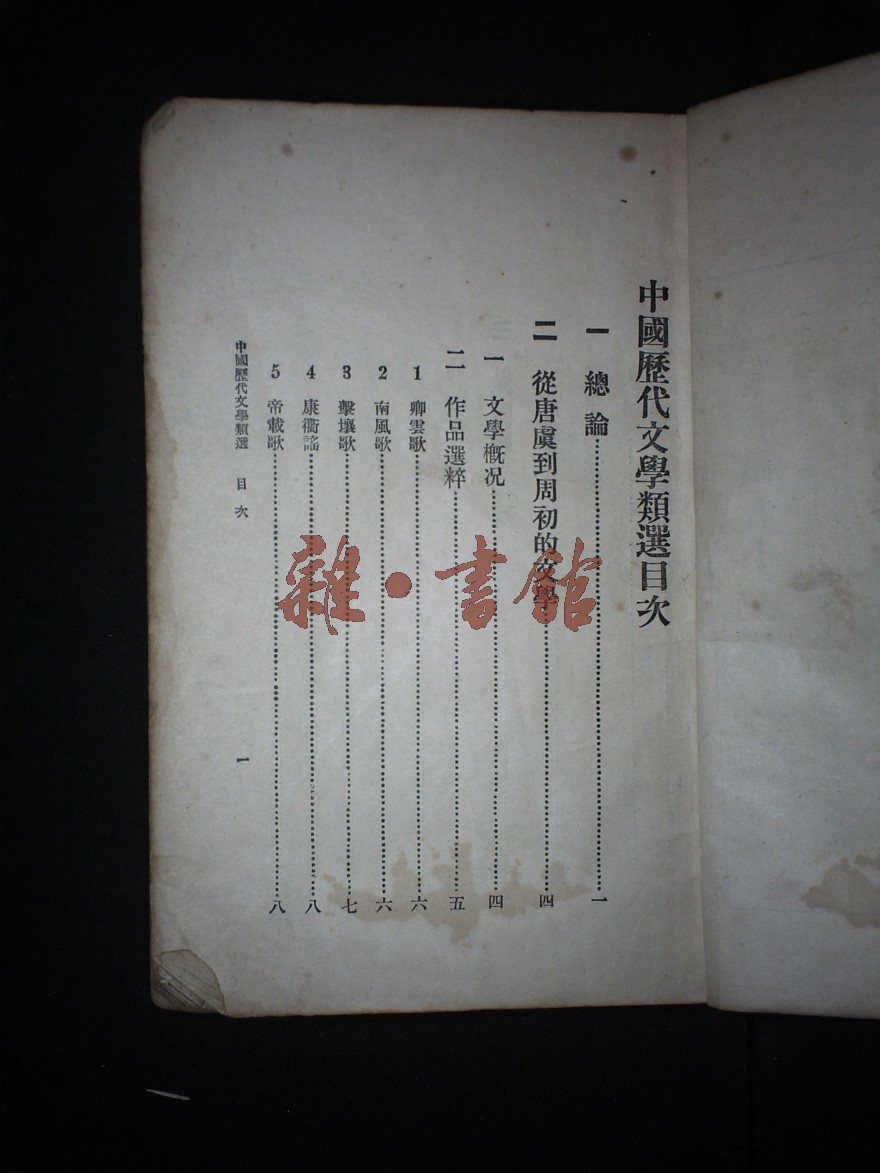 中國歷代文學類選目次
一 總論……一
二 從唐虞到周初的文學……四
一 文學概况……四
二 作品選粹……五
1 卿雲歌……六
2 南風歌……六
3 擊壤歌……七
4 康衢謠……八
5 帝載歌……八
中國歷代文學類選 目次 一
雜·書館